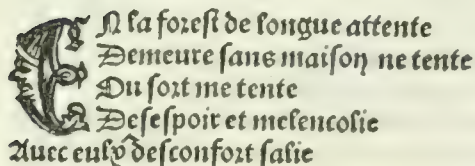 EN la foreſt de longue attente
Demeure ſans maiſon ne tente
Ou fort me tente
Deſeſpoir et melencolie
Auec eulx deſconfort ſalie